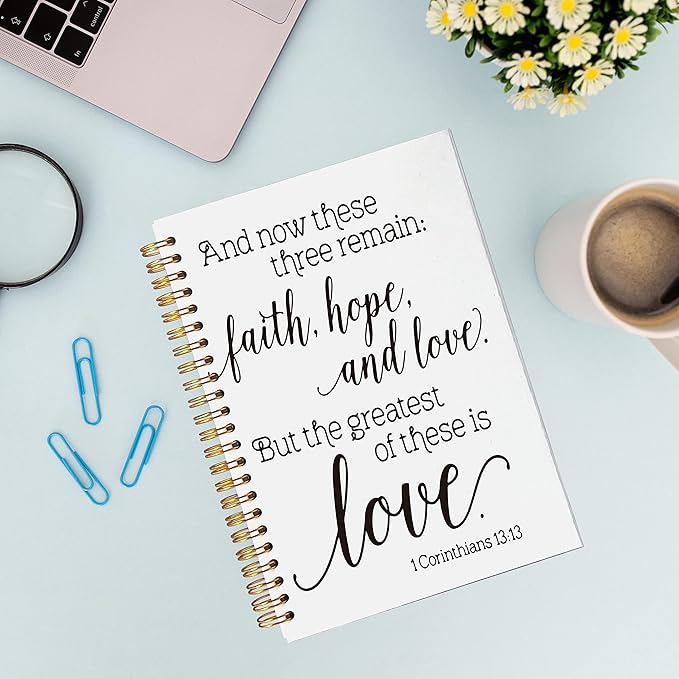 fn
control
And now these
three remain:
faith, hope,
and love.
But the greatest
of these is
love.
1 Corinthians 13:13